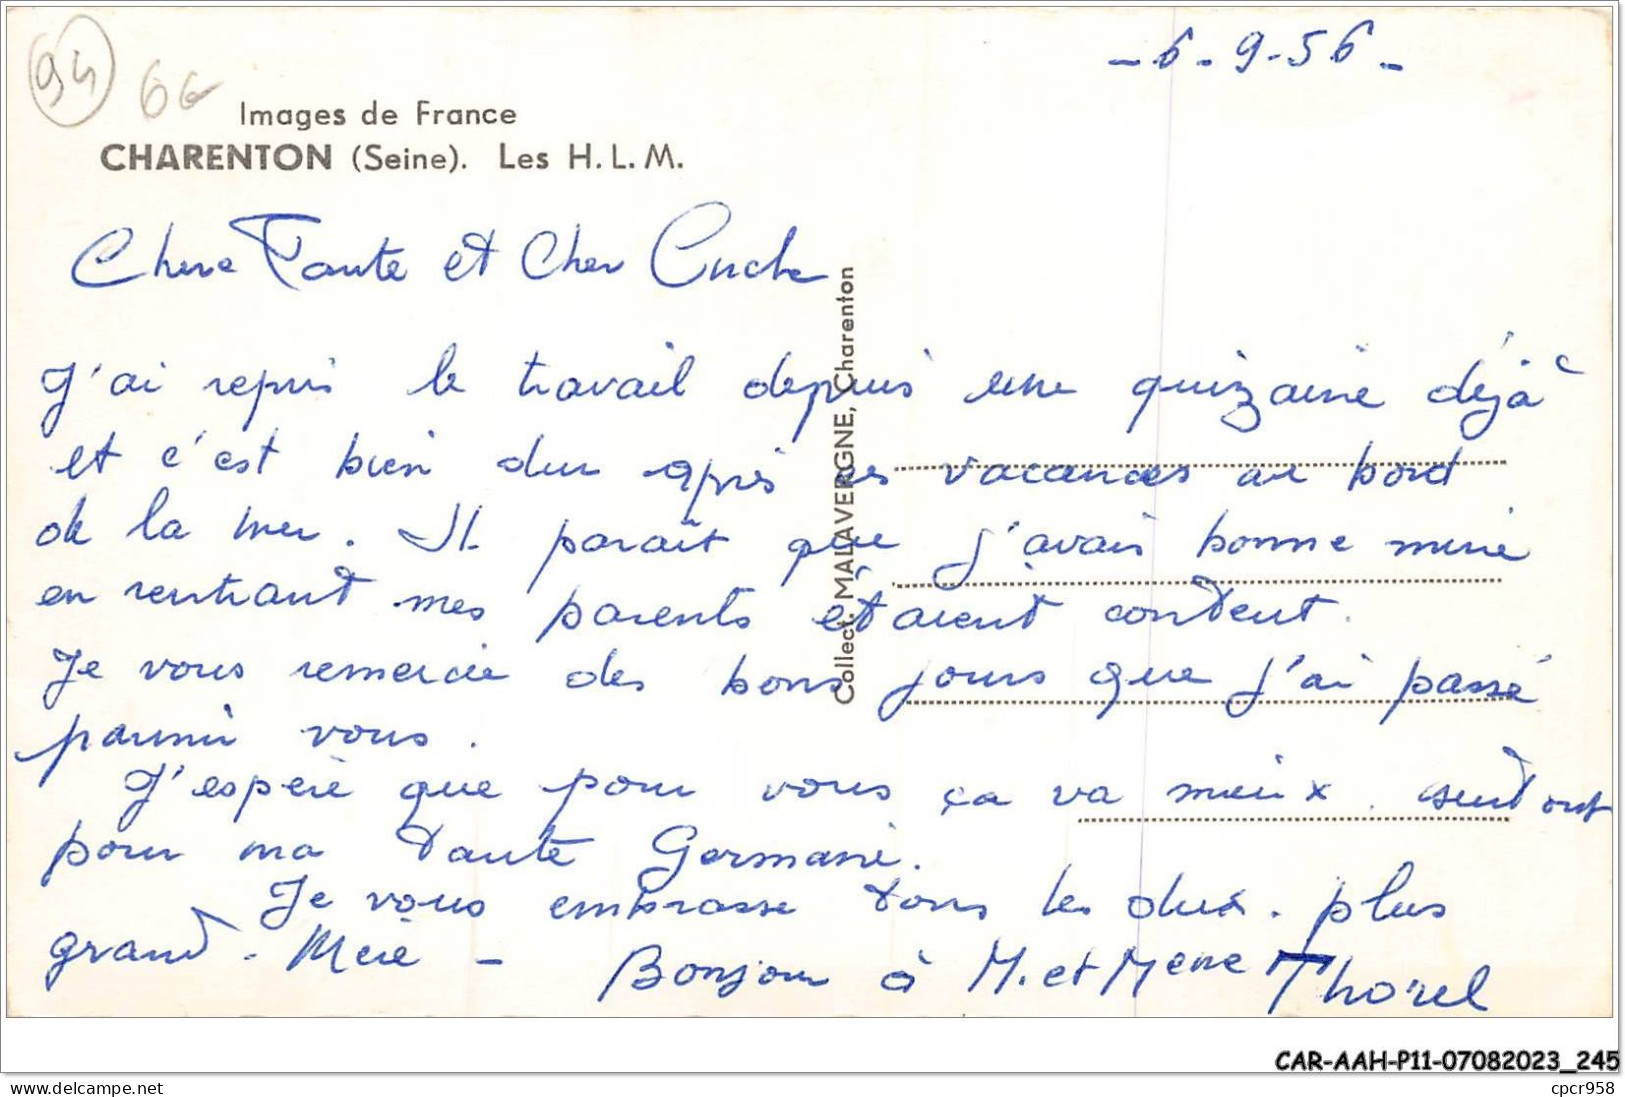 - 6 - 9 - 56 -
94
6€
Images de France
CHARENTON (Seine). Les H.L.M.
Chere Tante et Cher Oncle
J'ai repris le travail depuis une quizaine déjà
et c'est bien dur après les vacances au bord
de la mer. Il parait que j'avais bonne mine
en rentrant mes parents étaient content.
Je vous remercie des bons jours que j'ai passé
parmi vous.
J'espère que pour vous ça va mieux. surtout
pour ma tante Germaine.
Je vous embrasse tous les deux. plus
grand-Mère -
Bonjour à M. et Mme Thorel
Collect. MALAVERGNE, Charenton
CAR-AAH-P11-07082023_245
www.delcampe.net
cpcr958